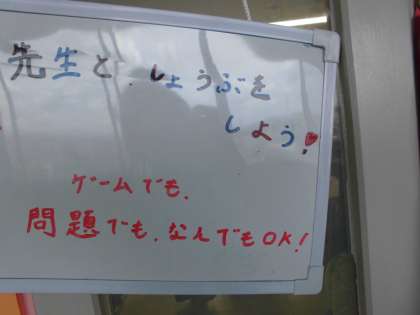 先生と しょうぶを
しよう!
ゲームでも、
問題でも、なんでもOK!